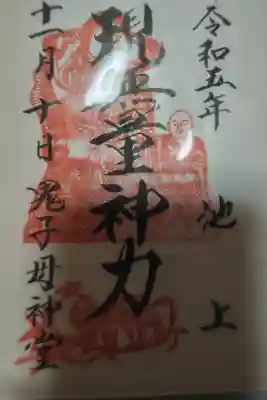 令和五年
池上
現無量神力
十一月十日 鬼子母神堂